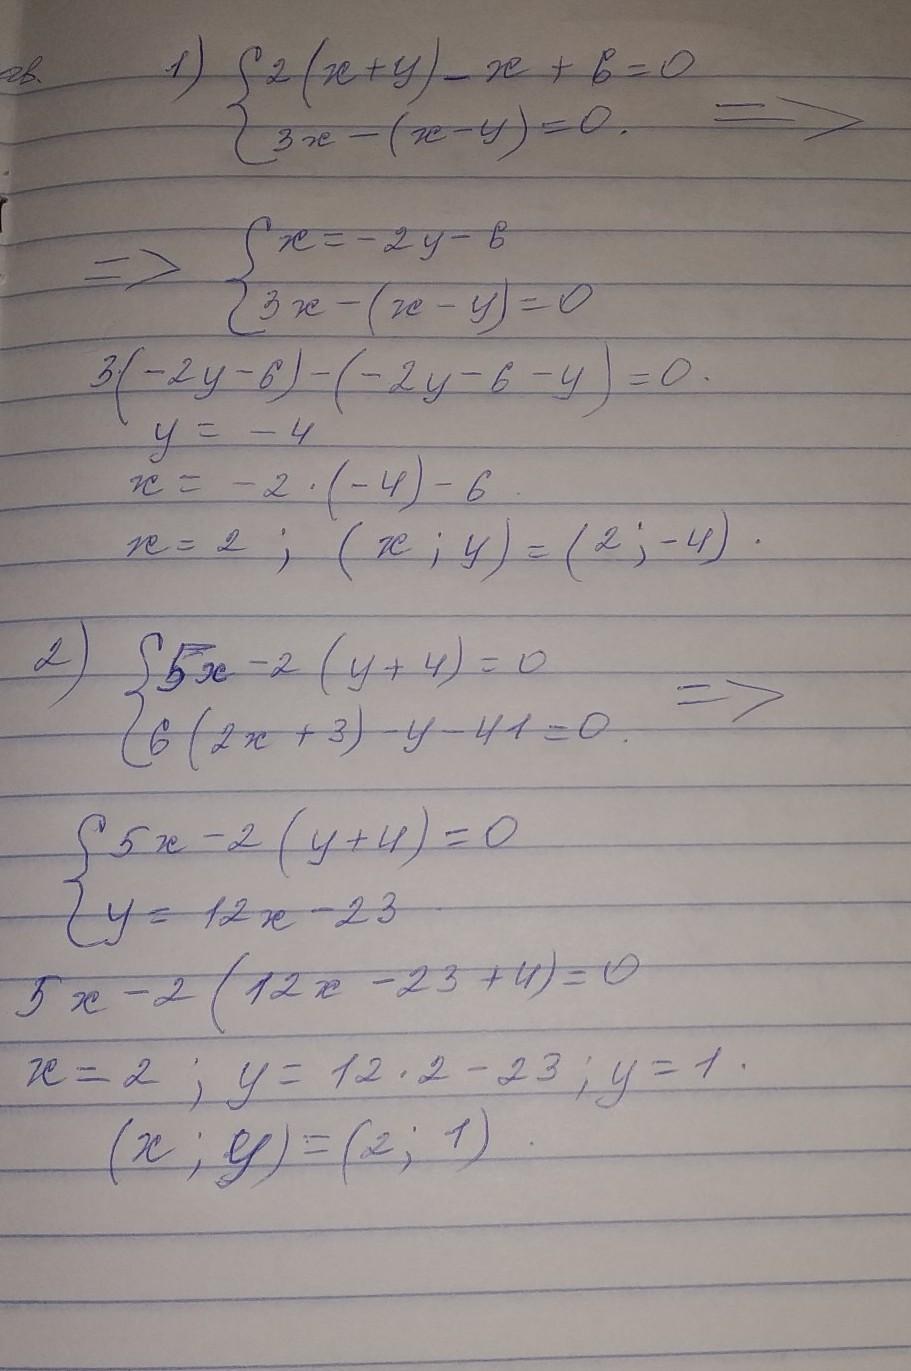 1) { 2(x+y) - x + 6 = 0
3x - (x - y) = 0. =>
=> { x = -2y - 6
3x - (x - y) = 0
3(-2y-6) - (-2y-6-y) = 0.
y = -4
x = -2·(-4) - 6
x = 2 ; (x ; y) = (2 ; -4).
2) { 5x - 2(y+4) = 0
6(2x+3) - y - 41 = 0. =>
{ 5x - 2(y+4) = 0
y = 12x - 23
5x - 2(12x - 23 + 4) = 0
x = 2 ; y = 12·2 - 23 ; y = 1.
(x ; y) = (2 ; 1).